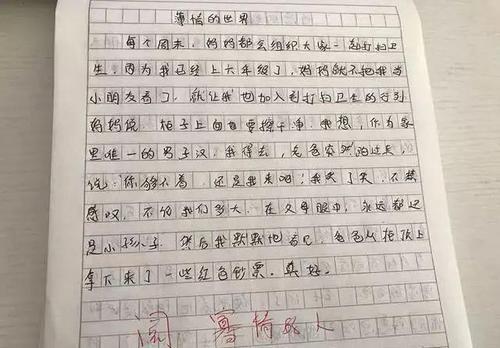 薄情的世界
每个周末，妈妈都会组织大家一起打扫卫
生，因为我已经上六年级了，妈妈就不把我当
小朋友看了，就让我也加入到打扫卫生的行列
妈妈说：柜子上面也要擦干净，我想，作为家
里唯一的男子汉，我得去，爸爸突然跑过来，
说：你够不着，还是我来吧！我笑了笑，不禁
感叹，不论我们多大，在父母眼中，永远都还
是小孩子。然后我默默地看见，爸爸从柜顶上
拿下来了一些红色钞票。真好。
阅，